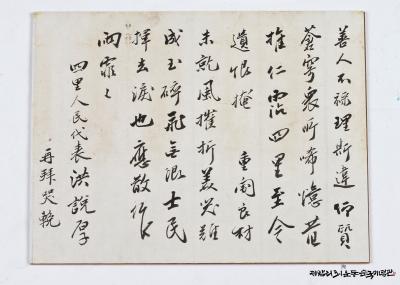 善人不祿理斯違仰質
蒼穹衆所唏憶昔
推仁霑四里至今
遺恨掩 重闈良材
未就風摧折美器難
成玉碎飛無限士民
揮去淚也應散作
雨霏々
四里人民代表洪說厚
再拜哭輓